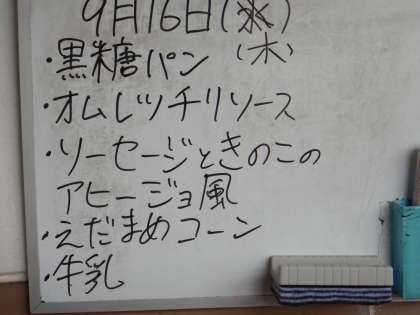 9月16日(水)
(木)
・黒糖パン
・オムレツチリソース
・ソーセージときのこの
アヒージョ風
・えだまめコーン
・牛乳